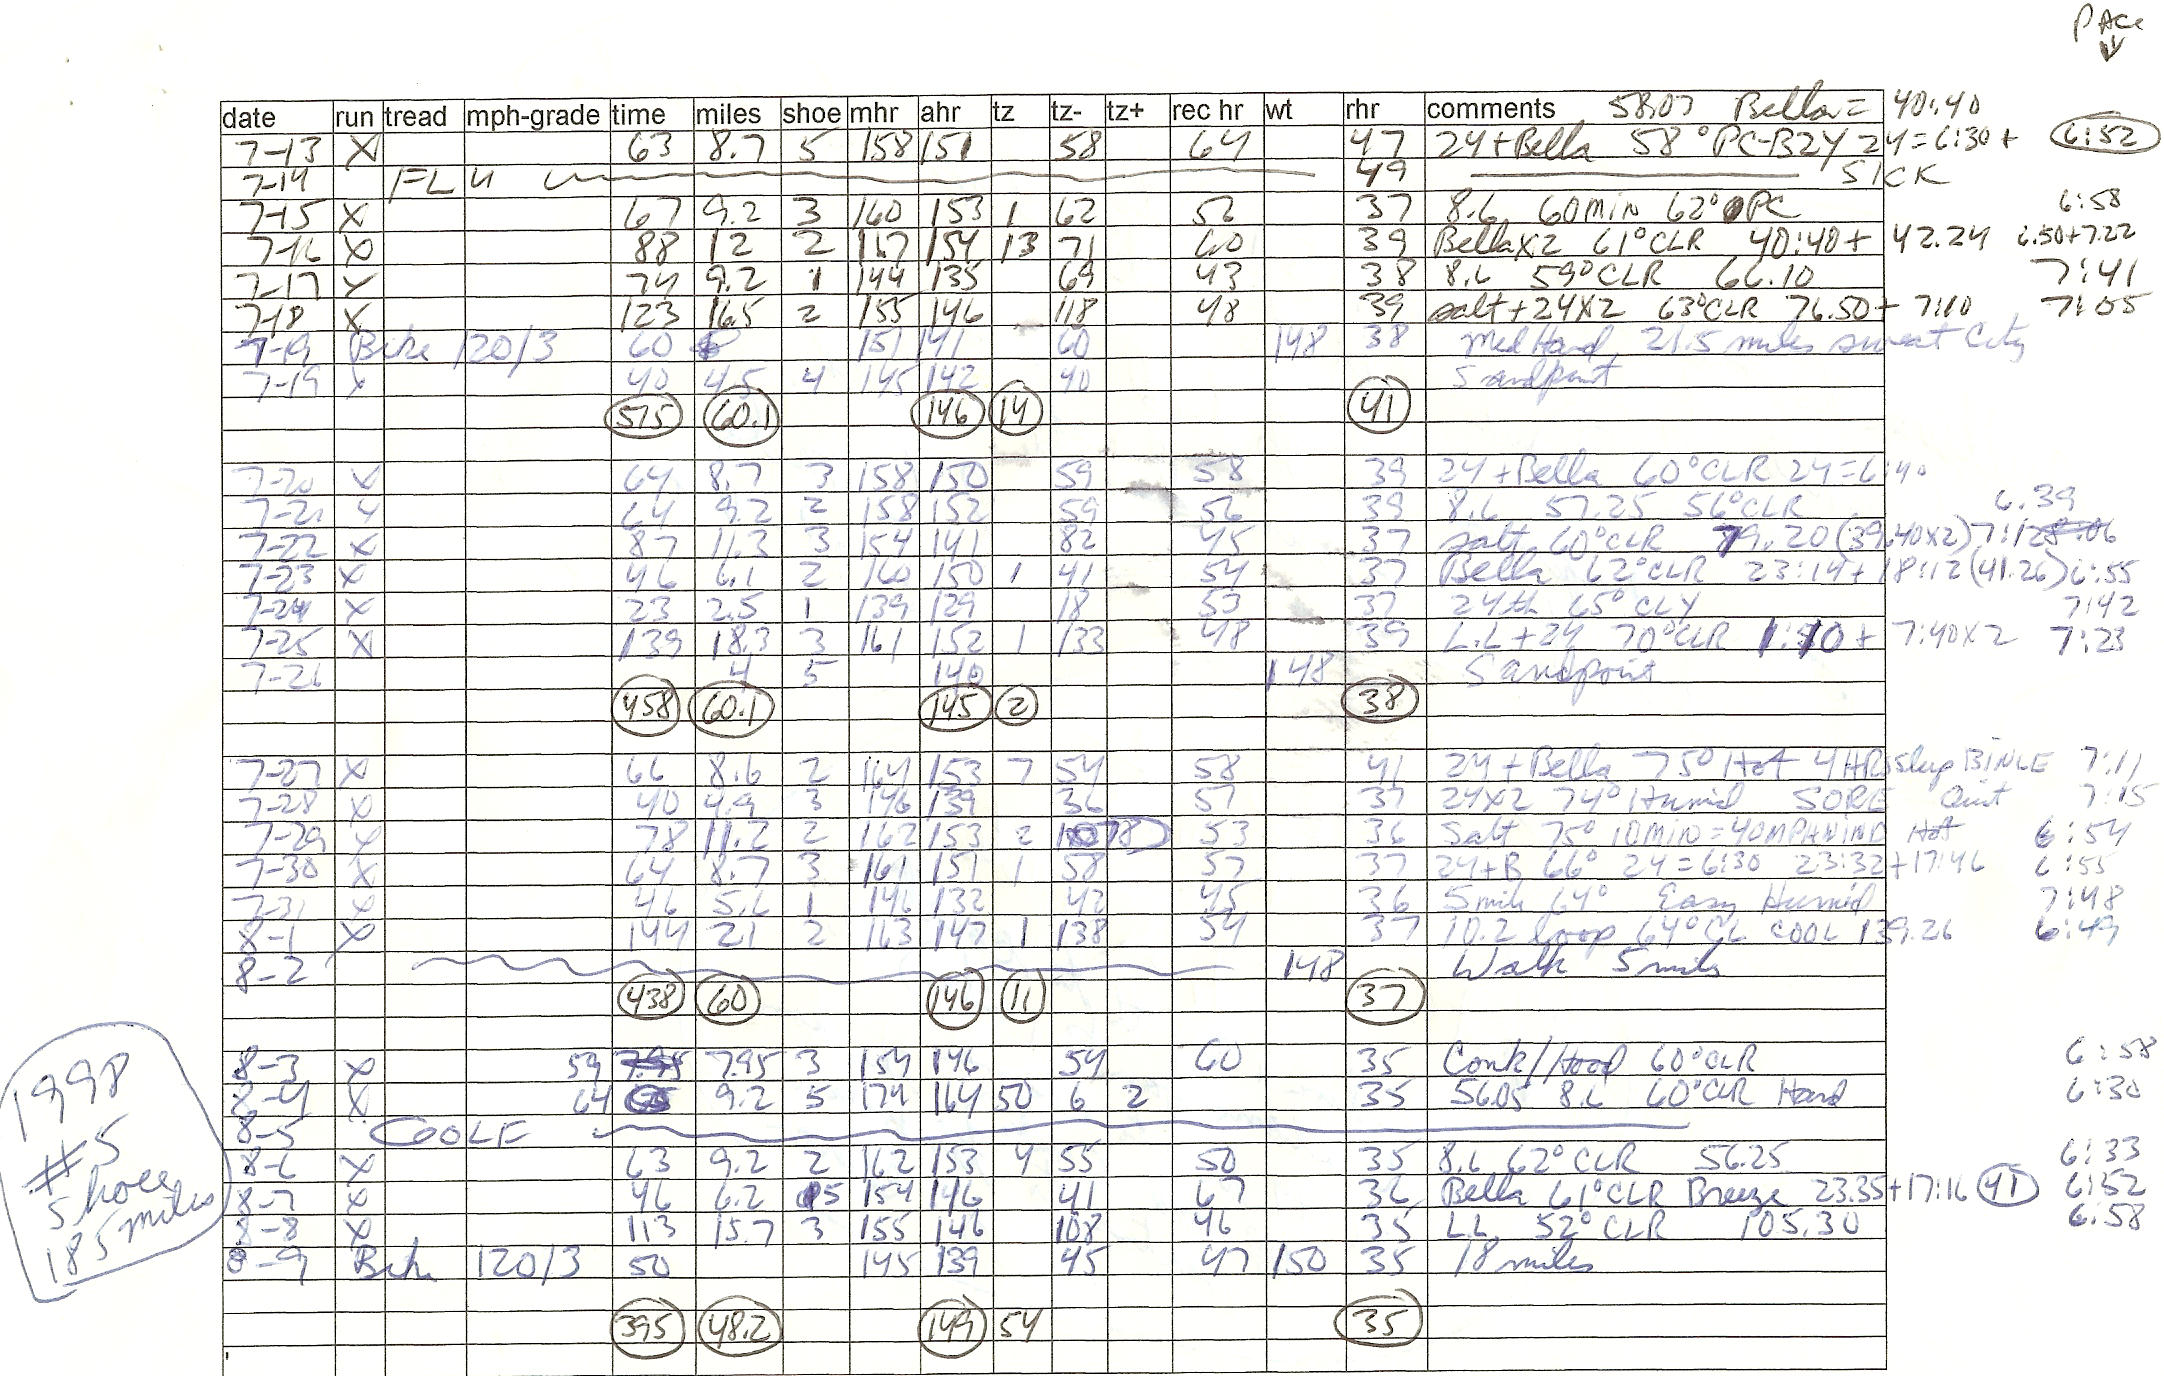 PACE
date run tread mph-grade time miles shoe mhr ahr tz tz- tz+ rec hr wt rhr comments 58.07 Bella = 40:40
7-13 X 63 8.7 5 158 151 58 64 47 24+Bella 58° PC-BZY 24=6:30+ 6:52
7-14 FLU 49 SICK
7-15 X 67 9.2 3 160 153 1 62 56 37 8.6 60min 62° PC 6:58
7-16 X 88 12 2 167 154 13 71 60 39 Bella X2 61° CLR 40:40+ 42.24 6.50+7.22
7-17 X 74 9.2 1 144 135 69 43 38 8.6 59° CLR 66.10 7:41
7-18 X 123 16.5 2 155 146 118 48 39 salt+24X2 63° CLR 76.50+ 7:10 7:05
7-19 Bike 120/3 60 151 141 60 148 38 Med Hard, 21.5 miles sweat City
7-19 X 40 4.5 4 145 142 40 Sandpoint
575 60.1 146 14 41
7-20 X 64 8.7 3 158 150 59 58 39 24+Bella 60° CLR 24=6:40
7-21 X 64 9.2 2 158 152 59 56 39 8.6 57.25 56° CLR 6.39
7-22 X 87 11.3 3 154 141 82 45 37 salt 60° CLR 79.20 (39.40X2) 7:12
7-23 X 46 6.1 2 160 150 1 41 54 37 Bella 62° CLR 23:14+18:12 (41.26) 6:55
7-24 X 23 2.5 1 139 129 18 53 37 24th 65° CLY 7:42
7-25 X 139 18.3 3 161 152 1 133 48 39 L.L+24 70° CLR + 7:40X2 7:23
7-26 4 5 140 148 Sandpoint
458 60.1 145 2 38
7-27 X 66 8.6 2 164 153 7 54 58 41 24+Bella 75° Hot 4 HRS Slep 7:11
7-28 X 40 4.9 3 146 139 36 57 37 24X2 74° Humid SORE Quit 7:15
7-29 X 78 11.2 2 162 153 2 78 53 36 Salt 75° 10MIN=40MPHWIND Hot 6:54
7-30 X 64 8.7 3 161 151 1 58 57 37 24+B 66° 24=6:30 23:32+17:46 6:55
7-31 X 46 5.6 1 146 132 42 45 36 5 mile 64° Easy Humid 7:48
8-1 X 144 21 2 163 147 1 138 54 37 10.2 loop 64° CL COOL 139.26 6:49
8-2 148 Walk 5 miles
438 60 146 11 37
8-3 X 59 7.95 3 154 146 54 60 35 Conk//Hood 60° CLR 6:58
8-4 X 64 9.2 5 174 164 50 6 2 35 56.05 8.6 60° CLR Hard 6:30
8-5 GOLF
8-6 X 63 9.2 2 162 153 4 55 50 35 8.6 62° CLR 56.25 6:33
8-7 X 46 6.2 5 154 146 41 67 36 Bella 61° CLR Breeze 23.35+17:16 41 6:52
8-8 X 113 15.7 3 155 146 108 46 35 LL 52° CLR 105.30 6:58
8-9 Bike 120/3 50 145 139 45 47 150 35 18 miles
395 48.2 149 54 35
1998
#5
Shoes
185 miles